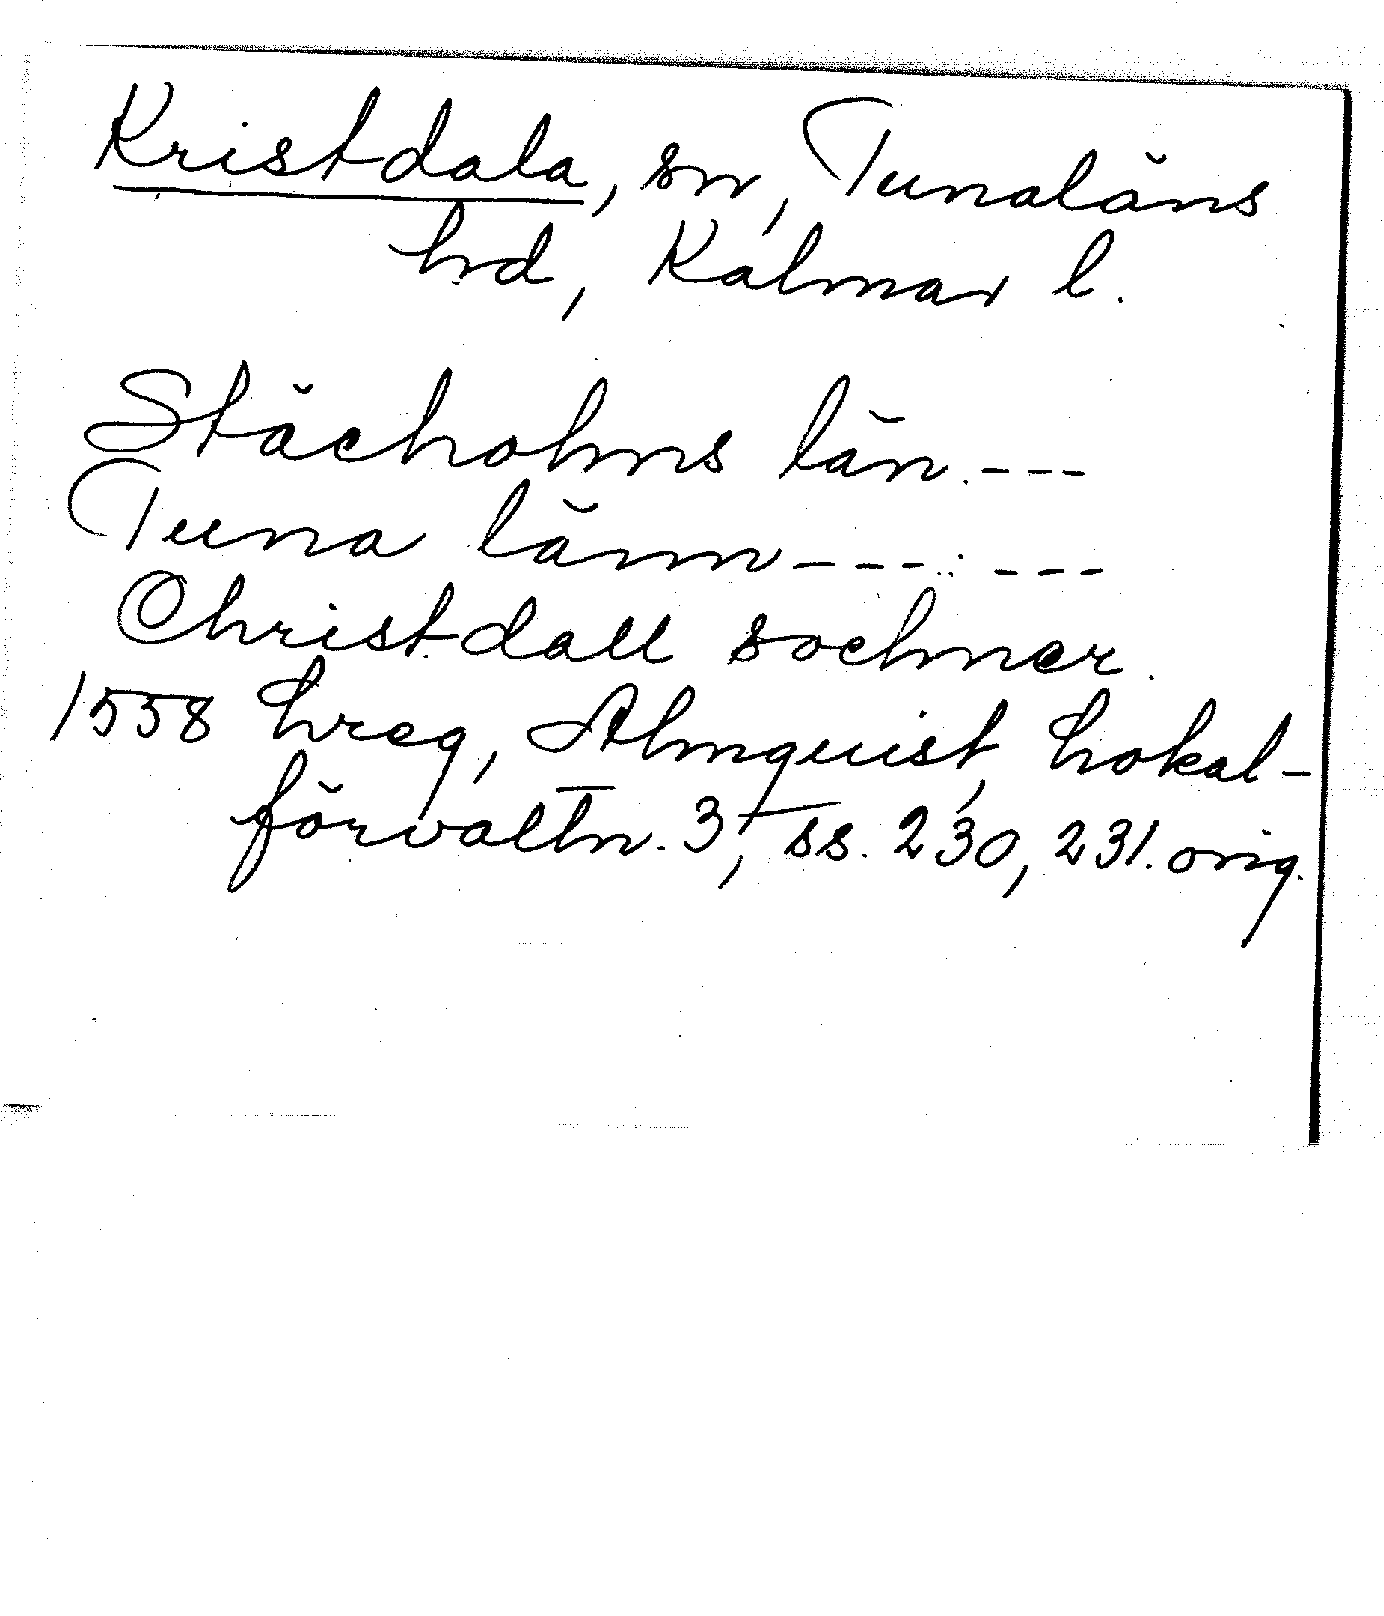 Kristdala, sn, Tunaläns
hd, Kalmar l.
Stächolms län. ---
Tuna länn --- : ---
Christdall sochner.
1558 Lreg, Almquist, Lokal-
förvaltn. 3, ss. 230, 231. orig.